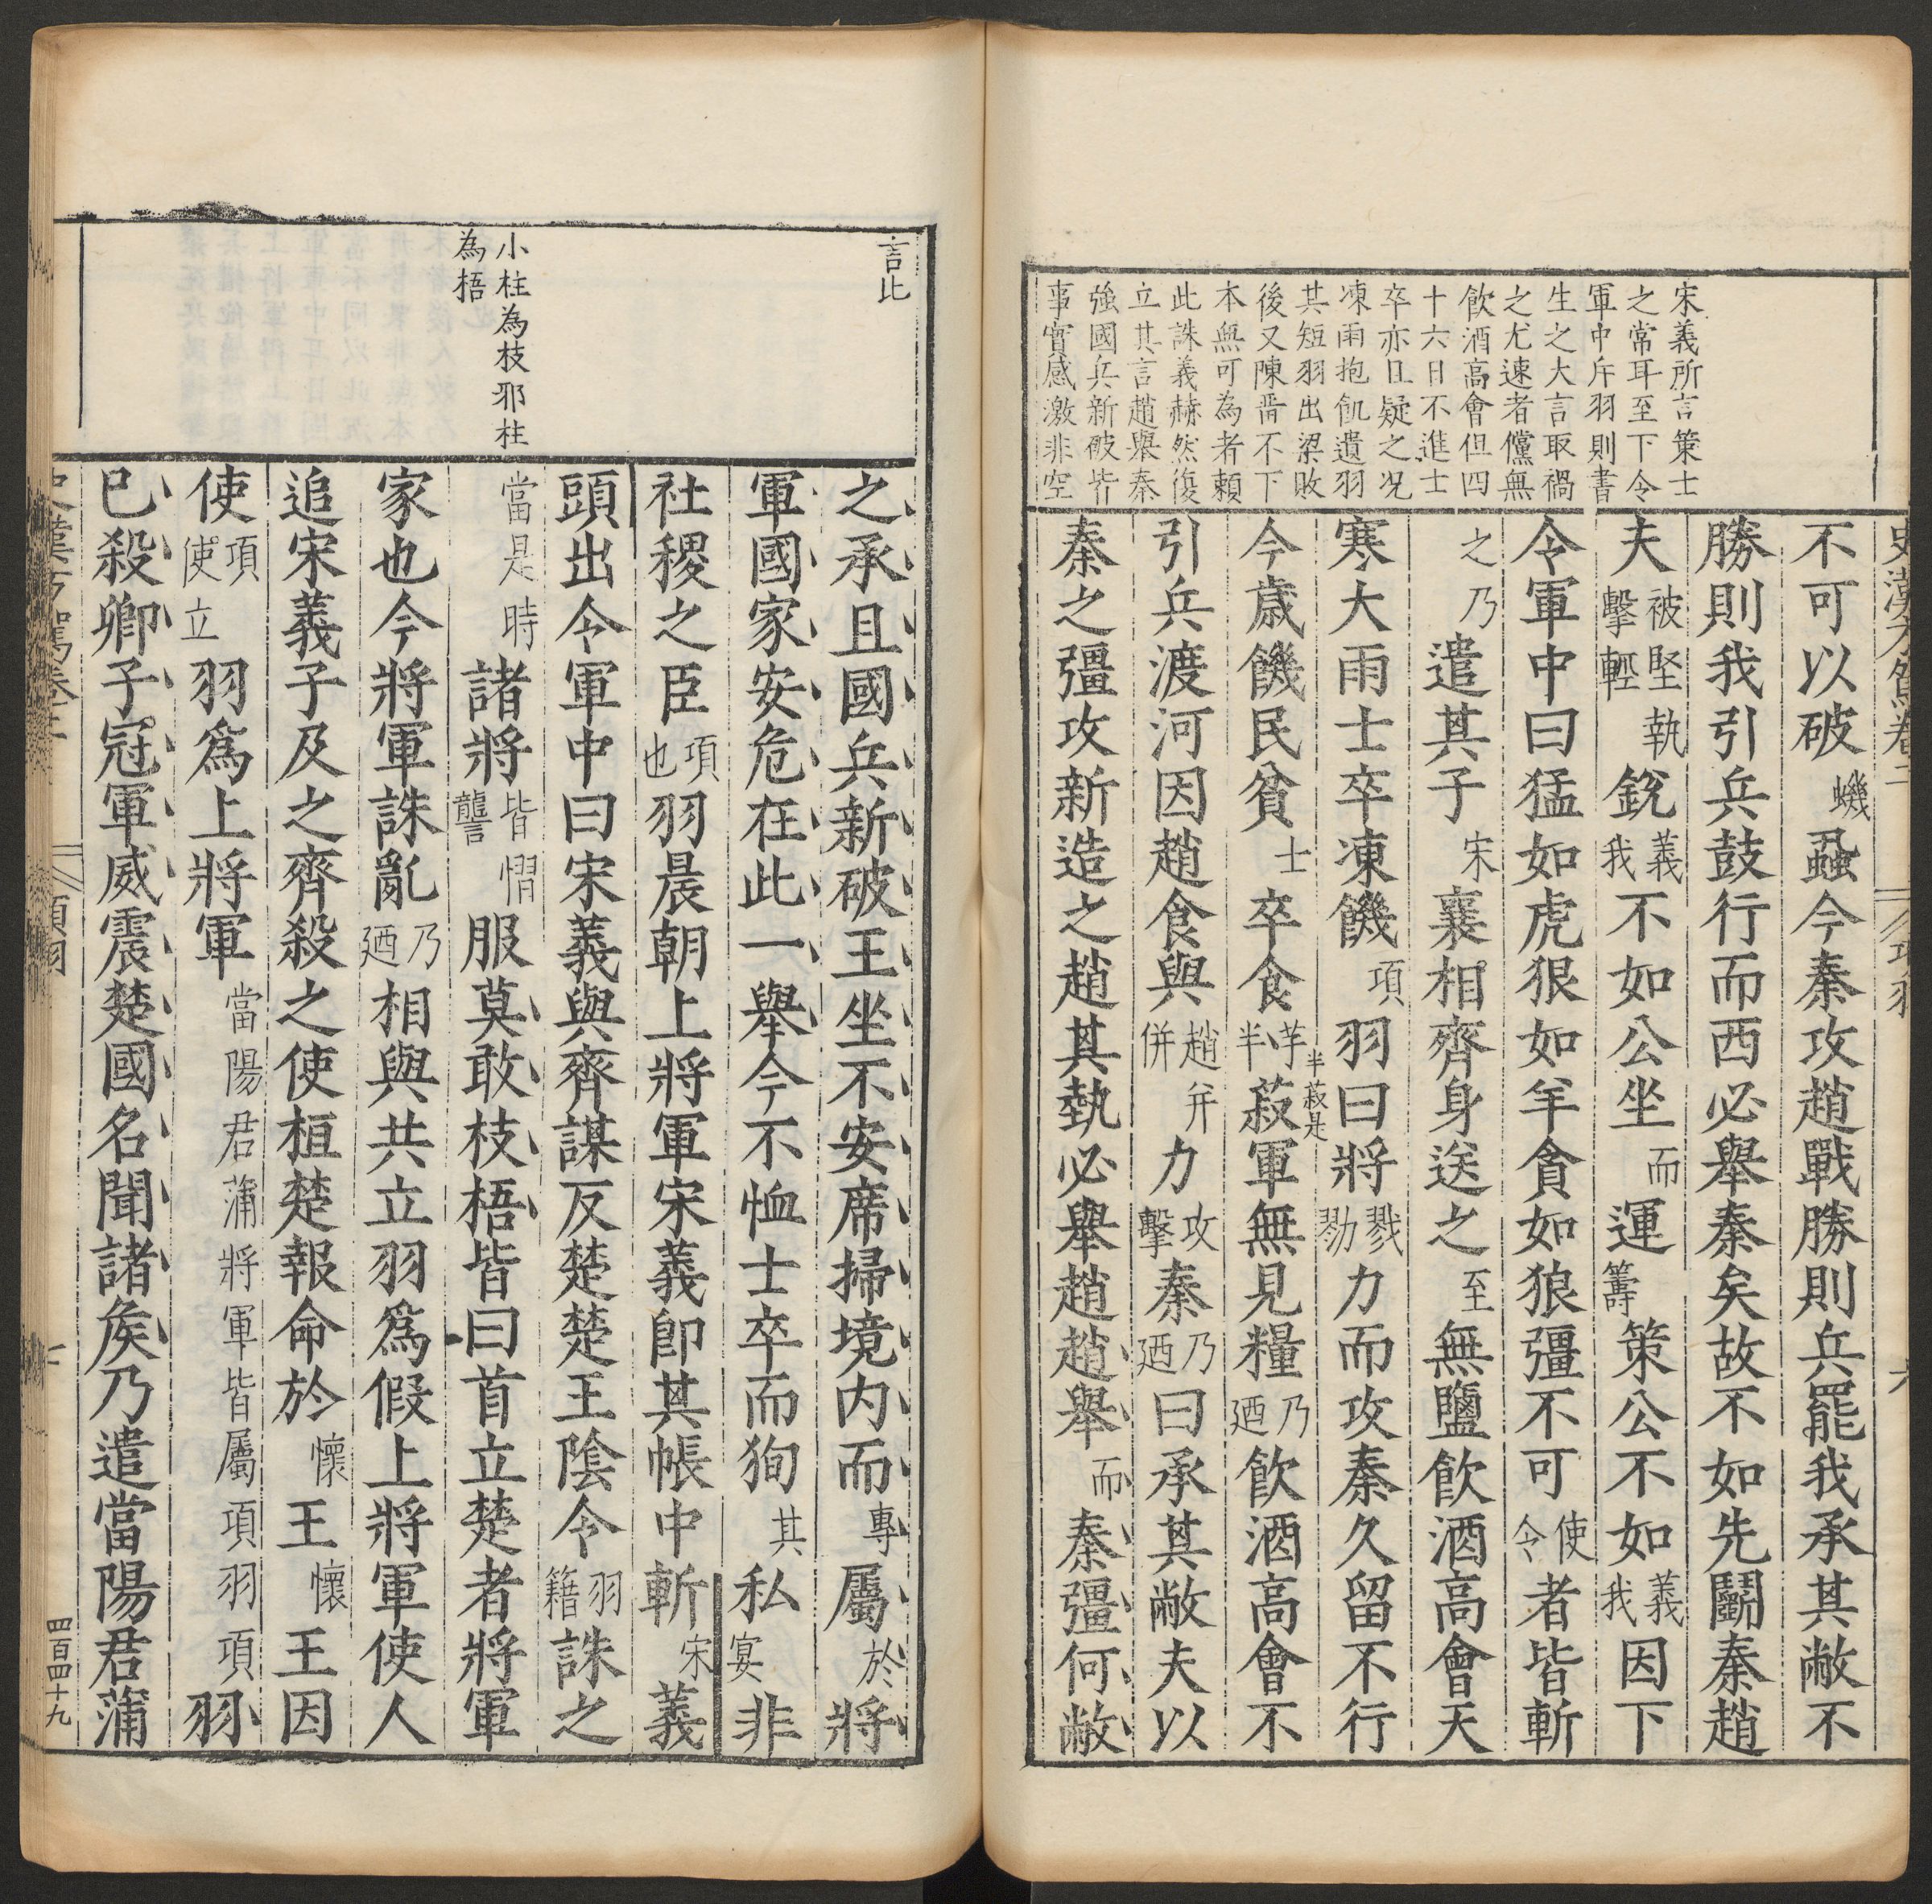 宋義所言策士
之常耳至下令
軍中斥羽則書
生之大言取禍
之尤速者儻無
飲酒高會但四
十六日不進士
卒亦且疑之况
凍雨抱飢遺羽
其短羽出梁敗
後又陳晋不下
本無可為者頼
此誅義赫然復
立其言趙舉秦
強國兵新破皆
事實感激非空
史漢方駕卷二
項羽
六
不可以破蟣蝨今秦攻趙戰勝則兵罷我承其敝不
勝則我引兵鼓行而西必舉秦矣故不如先鬭秦趙
夫被堅執擊輕銳義我不如公坐而運籌策公不如義我因下
令軍中曰猛如虎狠如羊貪如狼彊不可使令者皆斬
之乃遣其子宋襄相齊身送之至無鹽飲酒高會天
寒大雨士卒凍饑項羽曰將戮勠力而攻秦久留不行
今歲饑民貧士卒食芋半菽半菽是軍無見糧乃廼飲酒高會不
引兵渡河因趙食與趙并併力攻擊秦乃廼曰承其敝夫以
秦之彊攻新造之趙其埶必舉趙趙舉而秦彊何敝
言此
小柱為枝邪柱
為捂
之承且國兵新破王坐不安席掃境内而專屬於將
軍國家安危在此一舉今不恤士卒而狥其私宴非
社稷之臣項也羽晨朝上將軍宋義卽其帳中斬宋義
頭出令軍中曰宋義與齊謀反楚楚王陰令羽籍誅之
當是時諸將皆慴讋服莫敢枝梧皆曰首立楚者將軍
家也今將軍誅亂乃廼相與共立羽爲假上將軍使人
追宋義子及之齊殺之使桓楚報命於懷王懷王因
使項使立羽爲上將軍當陽君蒲將軍皆屬項羽項羽
已殺卿子冠軍威震楚國名聞諸矦乃遣當陽君蒲
史漢方駕卷二
項羽
四百四十九